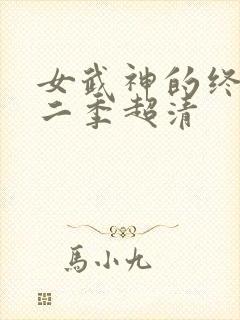 女武神的终
二季超清
馬小九